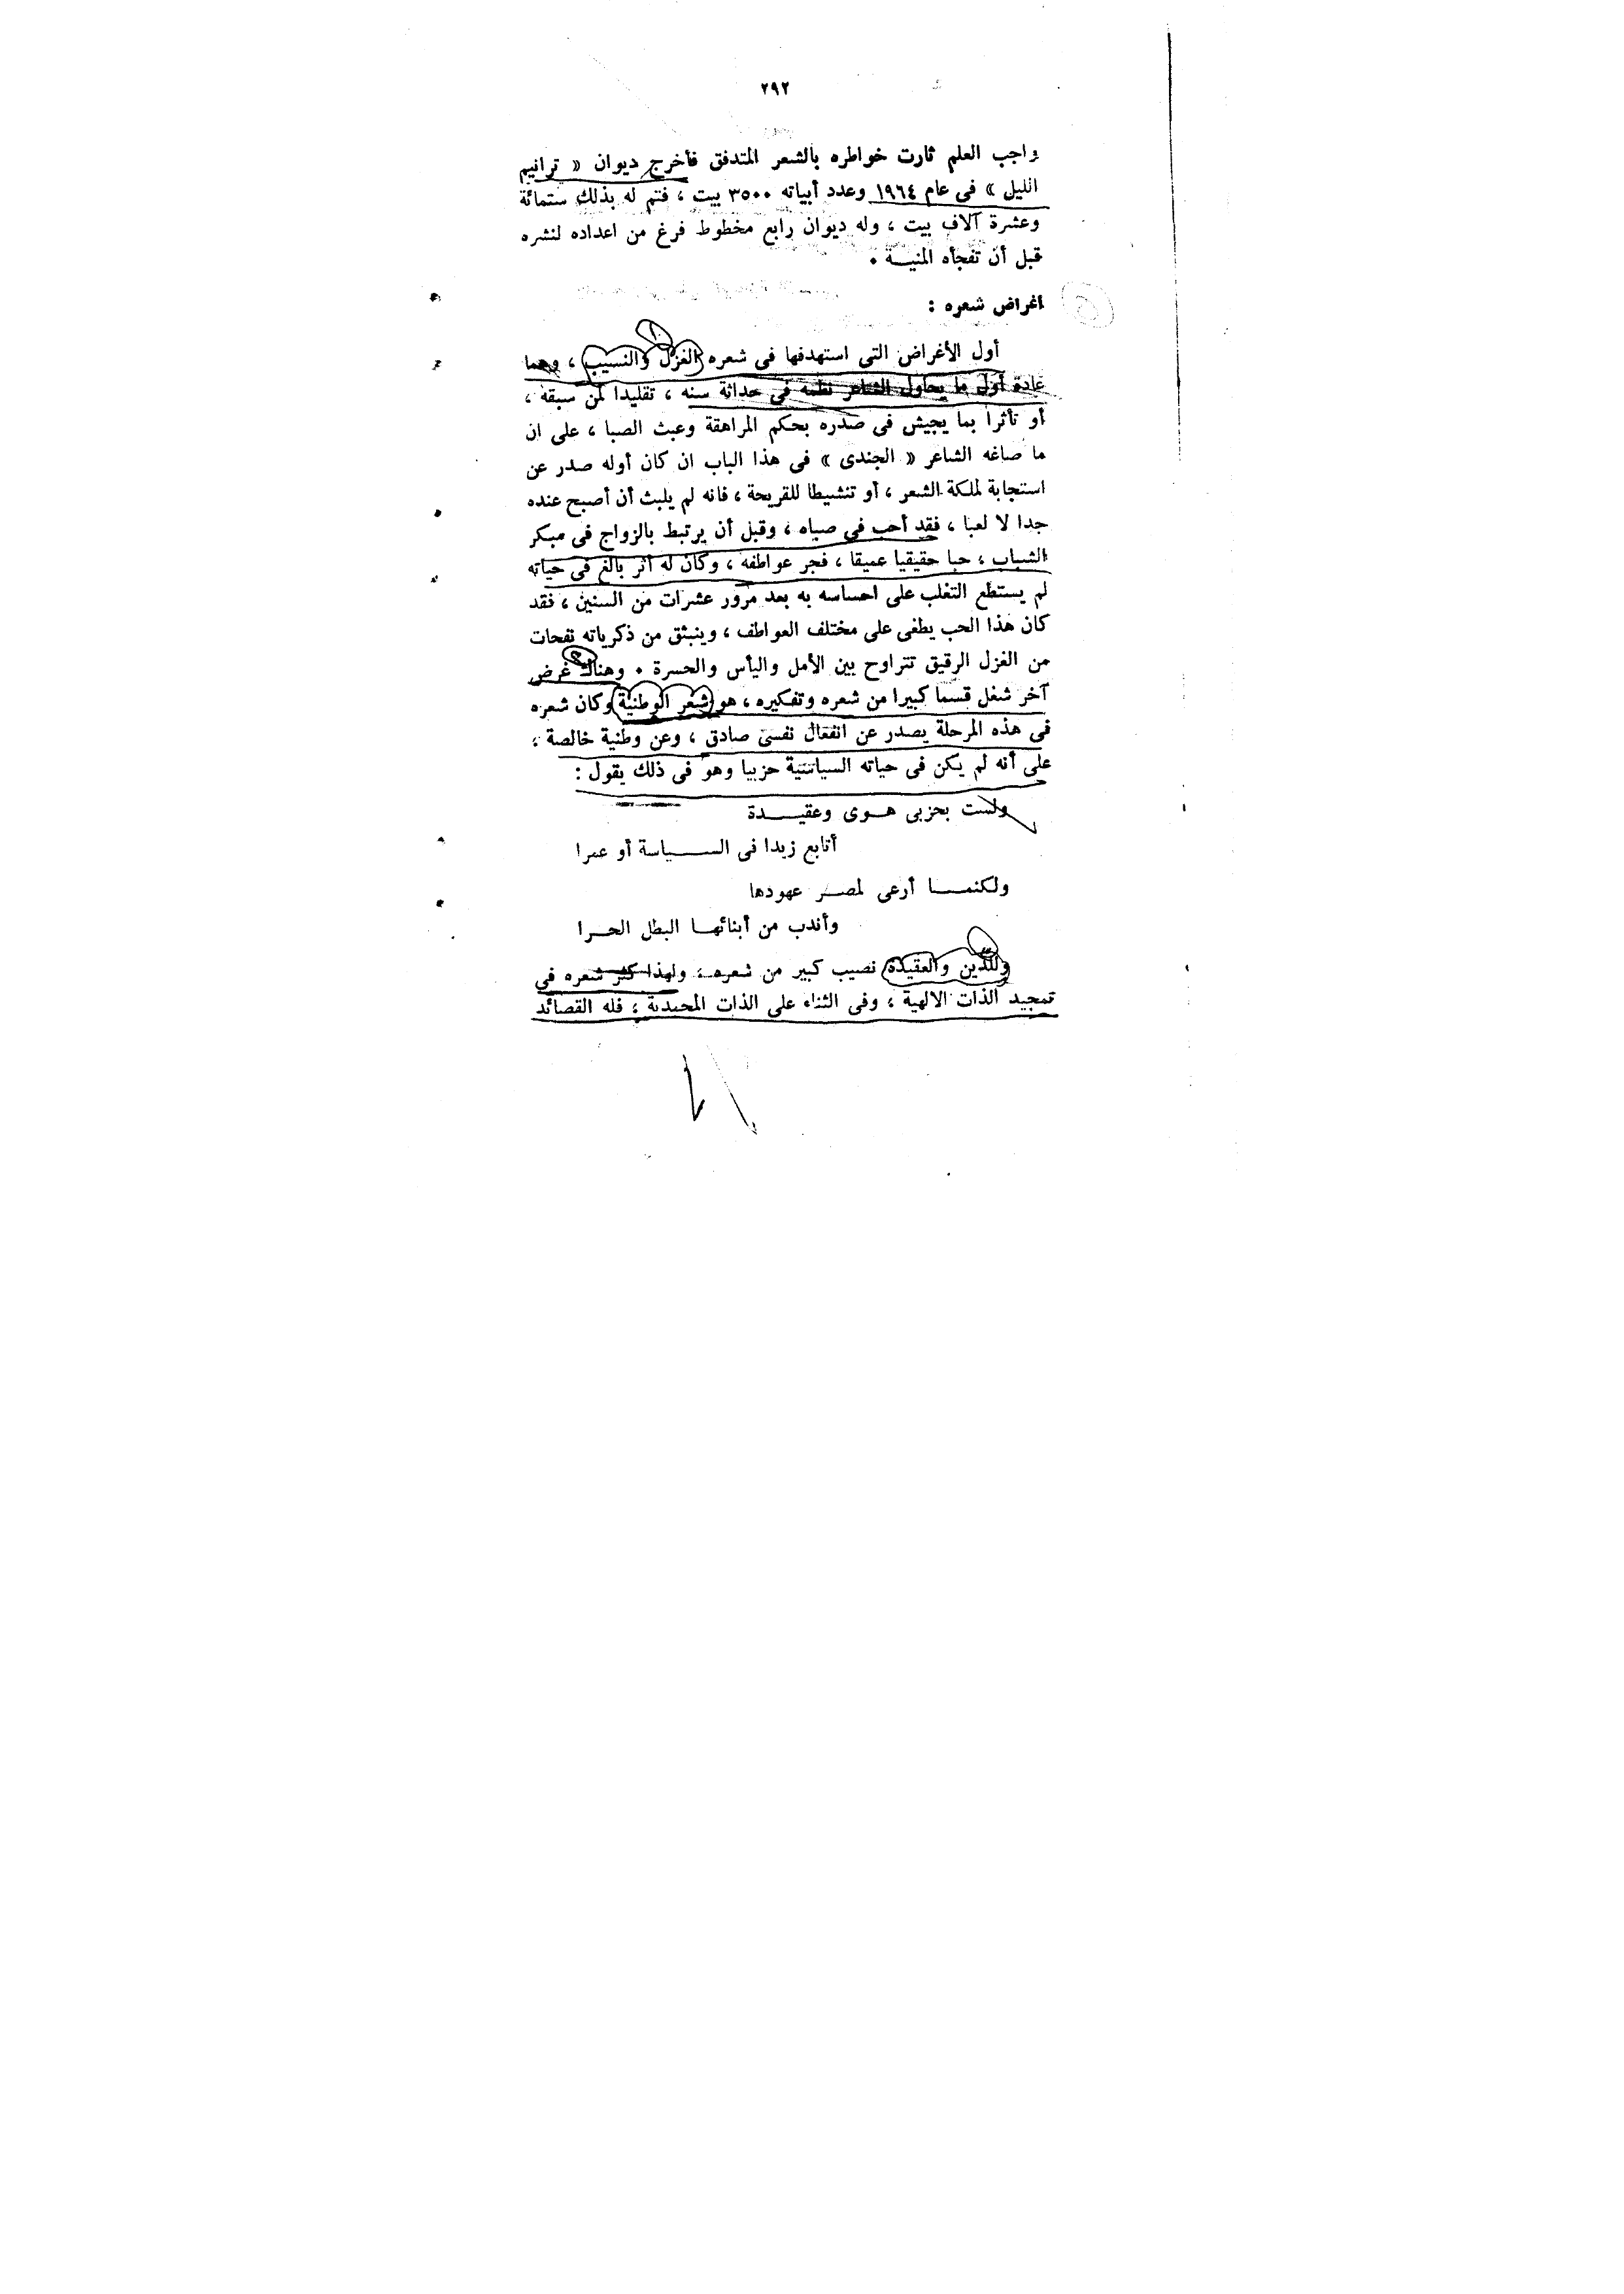 ٢٩٢
واجب العلم ثارت خواطره بالشعر المتدفق فأخرج ديوان « ترانيم
الليل » فى عام ١٩٦٤ وعدد أبياته ٣٥٠٠ بيت ، فتم له بذلك ستمائة
وعشرة آلاف بيت ، وله ديوان رابع مخطوط فرغ من اعداده لنشره
قبل أن تفجأه المنيـــة .
أغراض شعره :
أول الأغراض التى استهدفها فى شعره الغزل والنسيب ، وهما
عادة أول ما يحاول الشاعر نظمه فى حداثة سنه ، تقليدا لمن سبقه ،
أو تأثرا بما يجيش فى صدره بحكم المراهقة وعبث الصبا ، على ان
ما صاغه الشاعر « الجندى » فى هذا الباب ان كان أوله صدر عن
استجابة لملكة الشعر ، أو تنشيطا للقريحة ، فانه لم يلبث أن أصبح عنده
جدا لا لعبا ، فقد أحب فى صباه ، وقبل أن يرتبط بالزواج فى مبكر
الشباب ، حبا حقيقيا عميقا ، فجر عواطفه ، وكان له أثر بالغ فى حياته
لم يستطع التغلب على احساسه به بعد مرور عشرات من السنين ، فقد
كان هذا الحب يطغى على مختلف العواطف ، وينبثق من ذكرياته نفحات
من الغزل الرقيق تتراوح بين الأمل واليأس والحسرة . وهناك غرض
آخر شغل قسما كبيرا من شعره وتفكيره ، هو شعر الوطنية وكان شعره
فى هذه المرحلة يصدر عن انفعال نفسى صادق ، وعن وطنية خالصة ،
على أنه لم يكن فى حياته السياسية حزبيا وهو فى ذلك يقول :
ولست بحزبى هـــوى وعقيـــــدة
أتابع زيدا فى الســـــياسة أو عمرا
ولكنمـــــا أرعى لمصـــر عهودها
وأندب من أبنائهـــا البطل الحـــرا
وللدين والعقيدة نصيب كبير من شعره ، ولهذا كثر شعره فى
تمجيد الذات الالهية ، وفى الثناء على الذات المحمدية ، فله القصائد